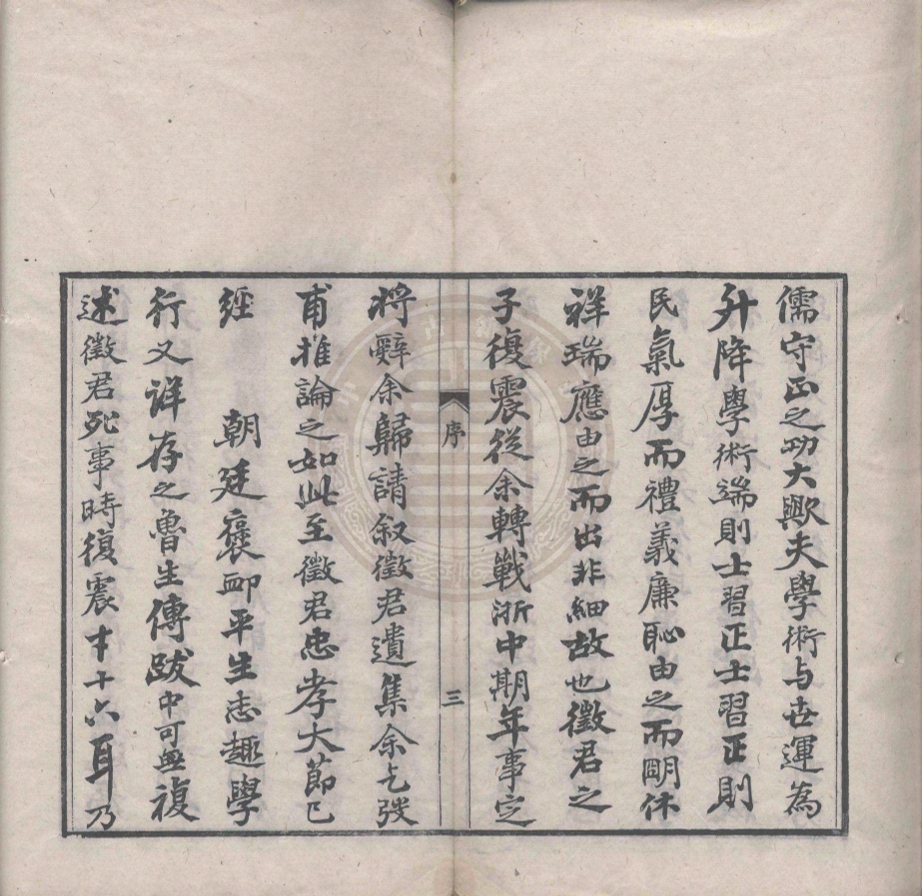 儒守正之功大歟夫學術与世運為
升降學術端則士習正士習正則
民氣厚而禮義廉恥由之而明休
祥瑞應由之而出非細故也徵君之
子復震從余轉戰浙中期年事定
序
三
將辭余歸請叙徵君遺集余乞弢
甫推論之如此至徵君忠孝大節已
經　　朝廷褒卹平生志趣學
行又詳存之魯生傳跋中可無複
述徵君死事時復震才十六耳乃